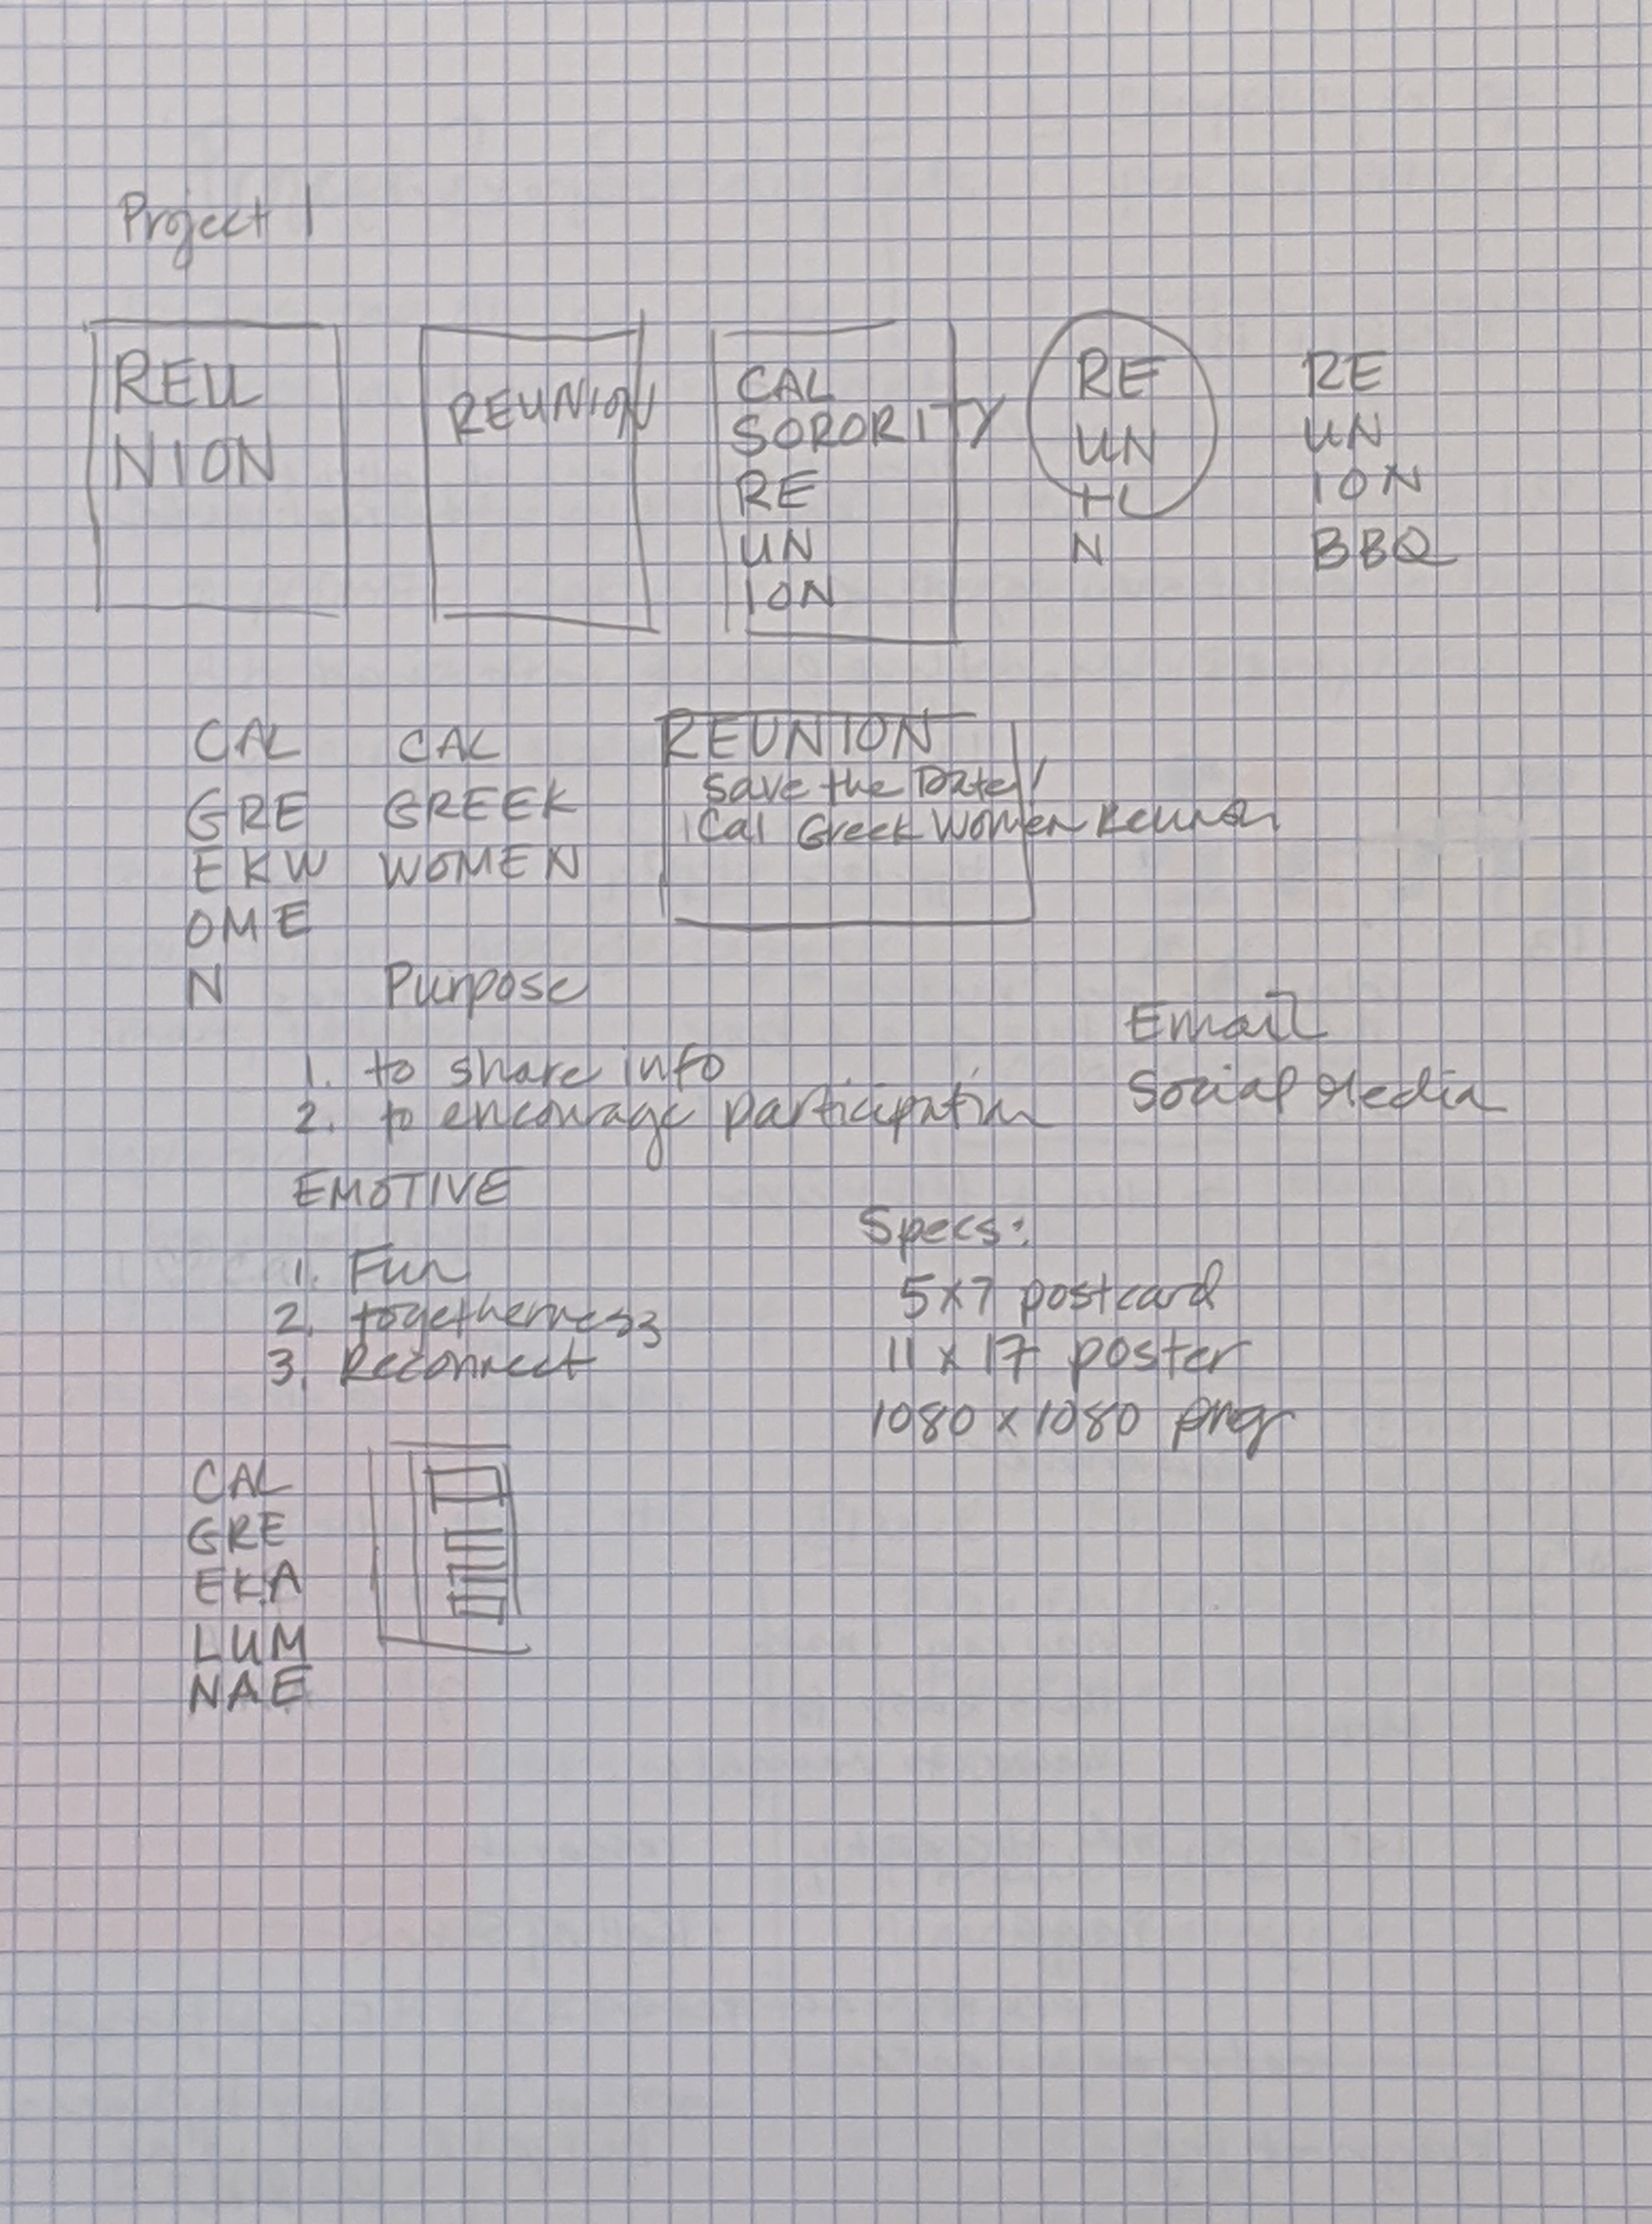 Project 1
REU
NION
REUNION
CAL
SORORITY
RE
UN
ION
RE
UN
N
RE
UN
ION
BBQ
CAL
GRE
EKW
OME
N
CAL
GREEK
WOMEN
REUNION
Save the Date!
Cal Greek Women Reunion
Purpose
1. to share info
2. to encourage participation
Email
Social Media
EMOTIVE
1. Fun
2. togetherness
3. Reconnect
Specs:
5x7 postcard
11 x 17 poster
1080 x 1080 png
CAL
GRE
EKA
LUM
NAE